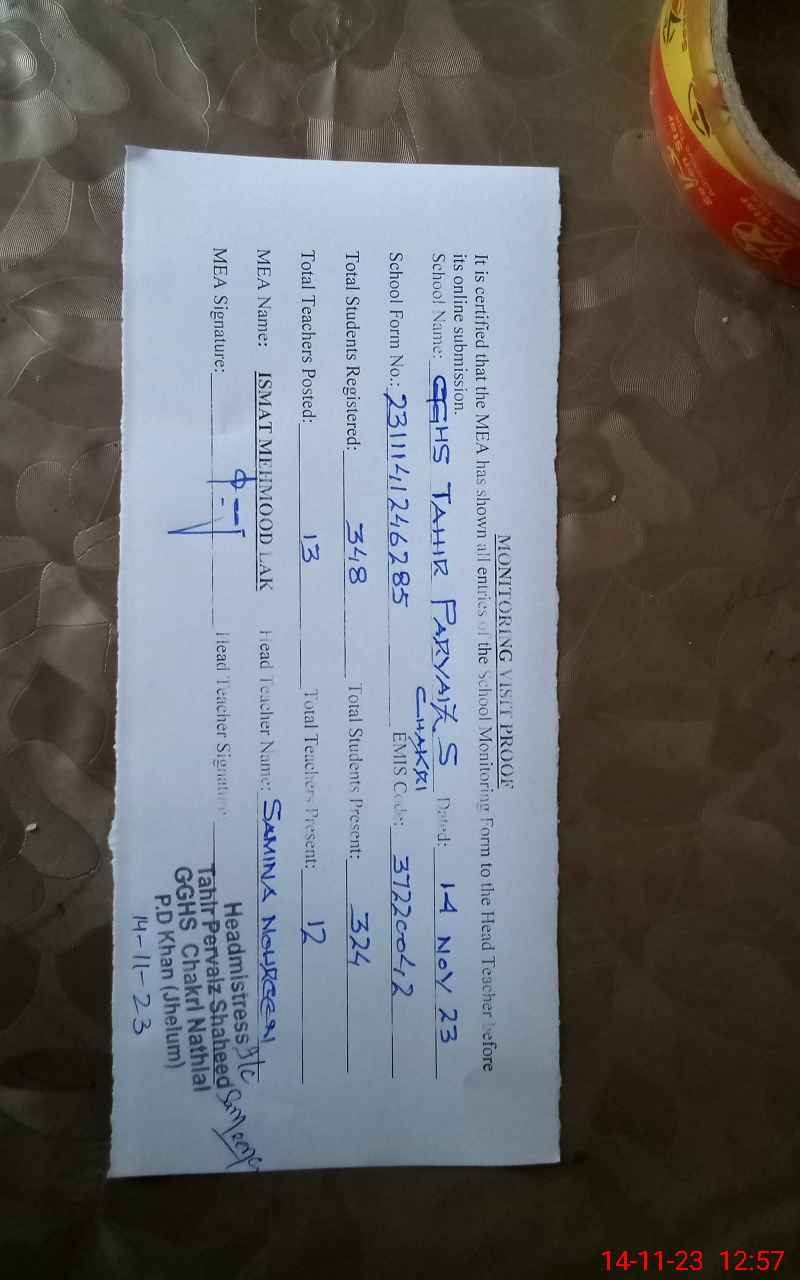 MONITORING VISIT PROOF
It is certified that the MEA has shown all entries of the School Monitoring Form to the Head Teacher before
its online submission.
School Name: GGHS TAHIR PARVAIZ S CHAKRI Dated: 14 NOV 23
School Form No.: 2311141246285 EMIS Code: 37220042
Total Students Registered: 348 Total Students Present: 324
Total Teachers Posted: 13 Total Teachers Present: 12
MEA Name: ISMAT MEHMOOD LAK Head Teacher Name: SAMINA NOUREEN
MEA Signature: Head Teacher Signature:
Headmistress I/C
Tahir Pervaiz Shaheed
GGHS Chakri Nathial
P.D Khan (Jhelum)
14-11-23
14-11-23 12:57